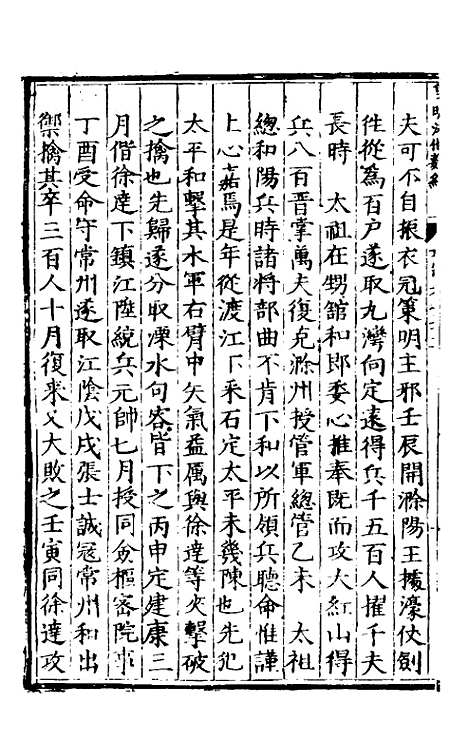 夫可不自振衣冠策明主邪壬辰開滁陽王據濠仗劍
徃從爲百户遂取九灣向定遠得兵千五百人擢千夫
長時　太祖在甥館和郎委心推奉既而攻大紅山得
兵八百晋掌萬夫復克滁州授管軍總管乙未　太祖
總和陽兵時諸將部曲不肯下和以所領兵聽命惟謹
上心嘉焉是年從渡江下采石定太平未㡬陳也先犯
太平和擊其水軍右臂中矢氣益厲與徐逹等夾擊破
之擒也先歸遂分取溧水句容皆下之丙申定建康三
月偕徐逹下鎮江陞統兵元帥七月授同僉樞宻院事
丁酉受命守常州遂取江陰戊戌張士誠冦常州和出
禦擒其卒三百人十月復来又大敗之壬寅同徐逹攻